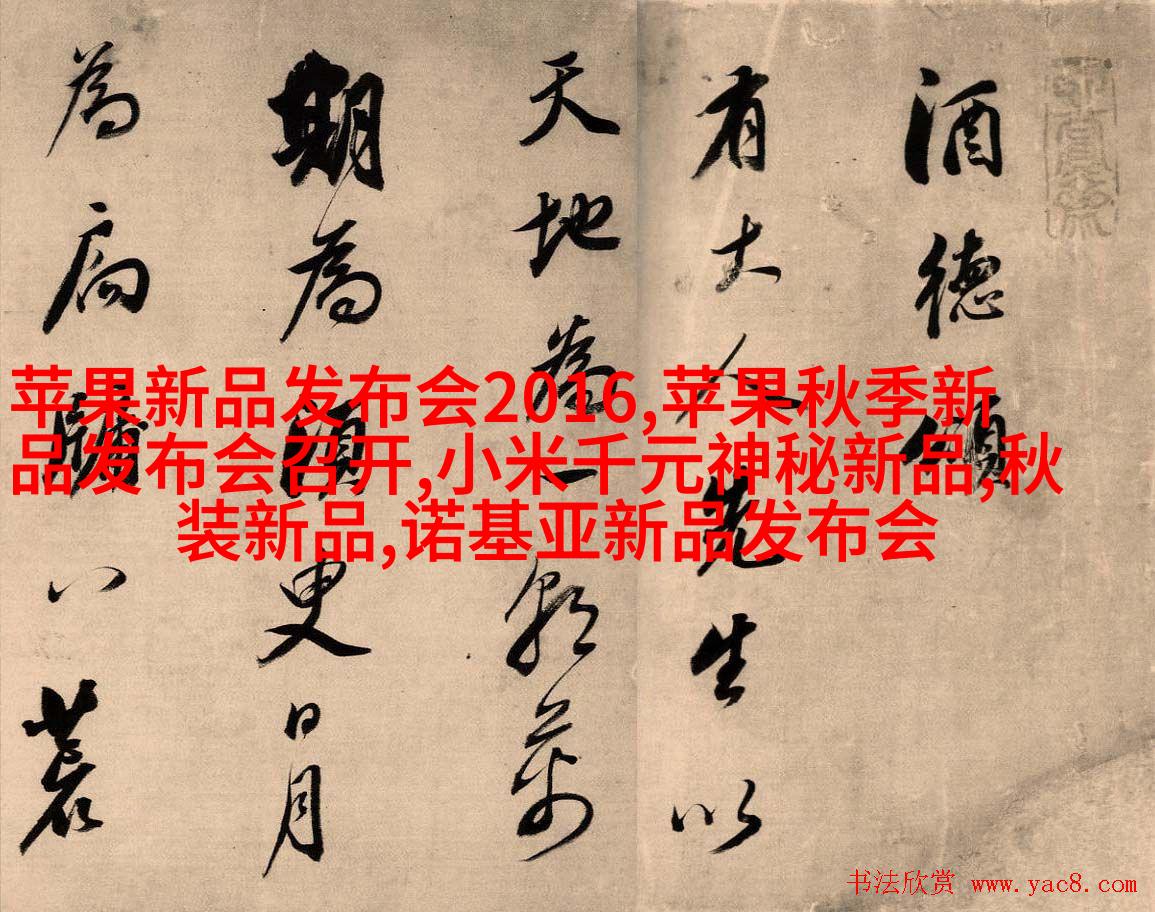 酒德頌
有大人先生以
天地為一朝萬
期為須臾日月
為扃牖八荒
苹果新品发布会2016,苹果秋季新
品发布会召开,小米千元神秘新品,秋
装新品,诺基亚新品发布会
书法欣赏 www.yac8.com